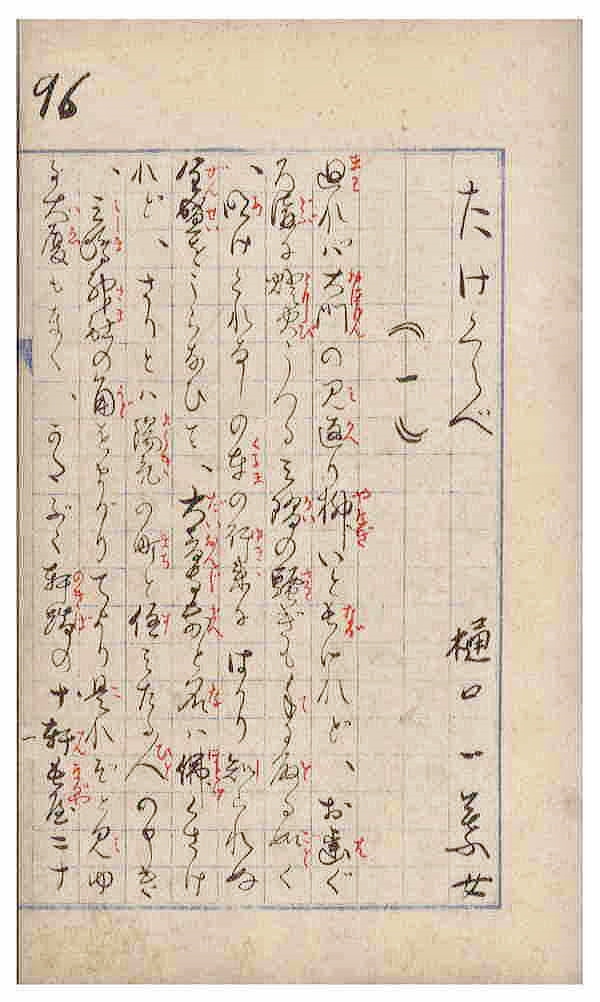 96
たけくらべ
樋口一葉女
(一)
廻れバ大門の見返り柳いと長けれど、お歯ぐ
ろ溝に燈火うつる三階の騒ぎも手に取る如く
、明けくれなしの車の行来にはかり知られぬ
全盛をうらなひて、大音寺前と名ハ佛くさけ
れど、さりとハ陽気の町と住みたる人の申き
、三嶋神社の角をまがりてより是れぞと見ゆ
る大厦もなく、かたぶく軒端の十軒長屋二十